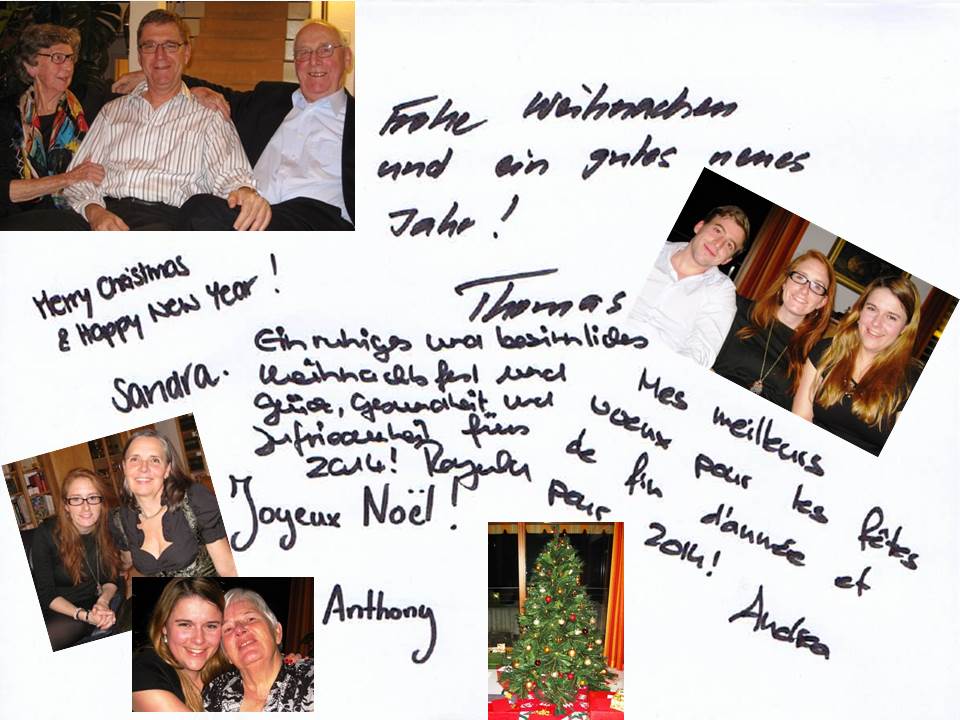 Frohe Weihnachen
und ein gutes neues
Jahr!
Thomas
Merry Christmas
& Happy New Year!
Sandra.
Ein ruhiges und besinnliches
Weihnachtsfest und
Glück, Gesundheit und
Zufriedenheit fürs
2014!
Joyeux Noël!
Anthony
Mes meilleurs
voeux pour les fêtes
de fin d'année et
pour 2014!
Andrea